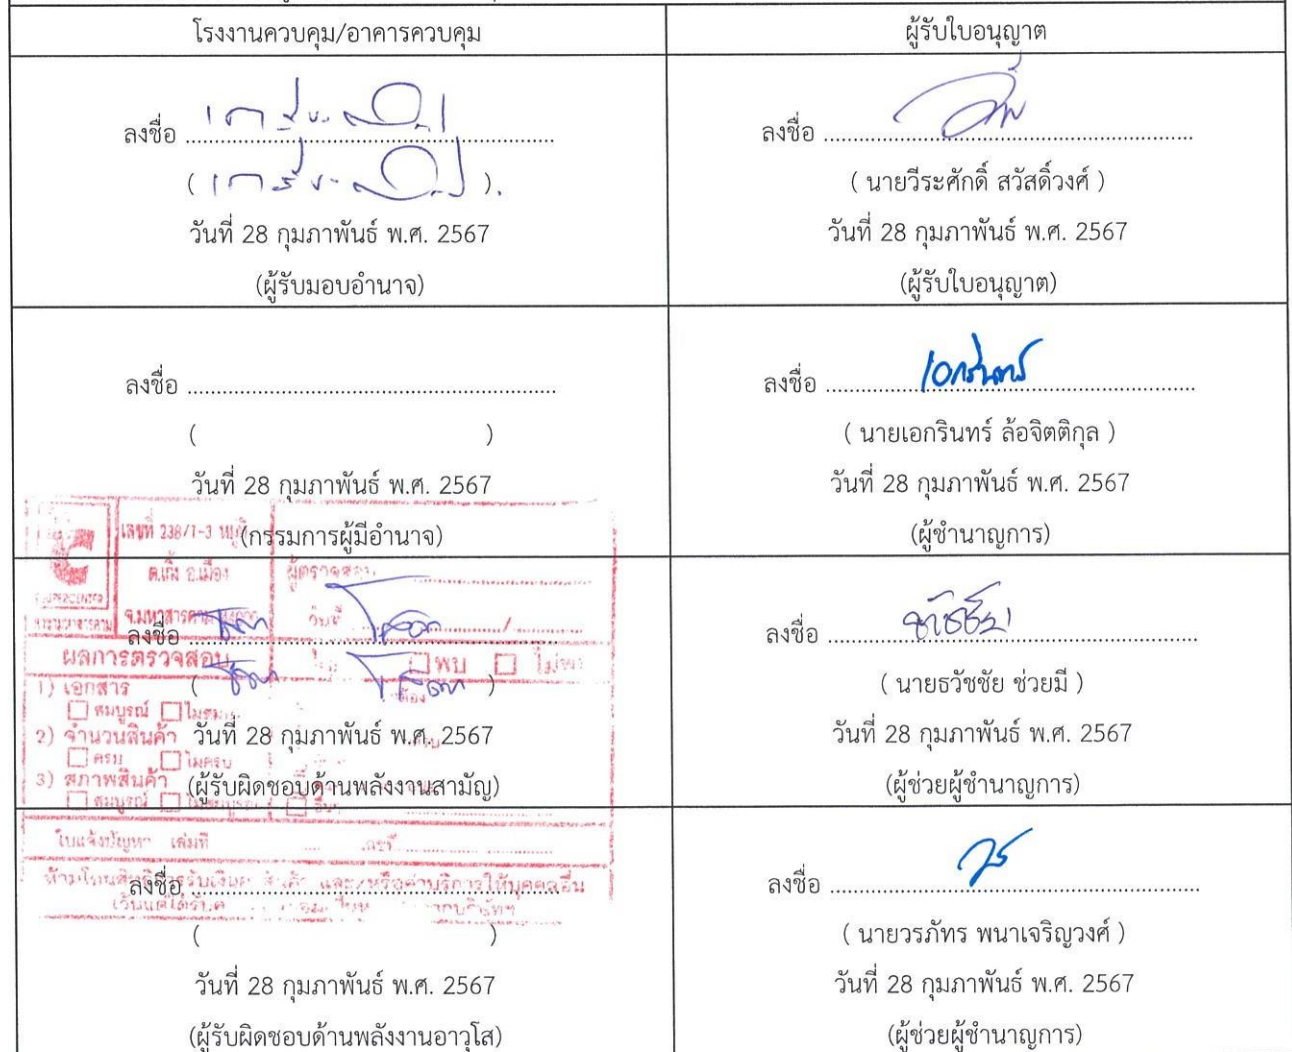 โรงงานควบคุม/อาคารควบคุม
ผู้รับใบอนุญาต
ลงชื่อ ..........................................................
วันที่ 28 กุมภาพันธ์ พ.ศ. 2567
(ผู้รับมอบอำนาจ)
ลงชื่อ ..........................................................
( นายวีระศักดิ์ สวัสดิ์วงศ์ )
วันที่ 28 กุมภาพันธ์ พ.ศ. 2567
(ผู้รับใบอนุญาต)
ลงชื่อ ..........................................................
( )
วันที่ 28 กุมภาพันธ์ พ.ศ. 2567
(กรรมการผู้มีอำนาจ)
ลงชื่อ เอกรินทร์
( นายเอกรินทร์ ล้อจิตติกุล )
วันที่ 28 กุมภาพันธ์ พ.ศ. 2567
(ผู้ชำนาญการ)
ลงชื่อ ..........................................................
วันที่ 28 กุมภาพันธ์ พ.ศ. 2567
(ผู้รับผิดชอบด้านพลังงานสามัญ)
ลงชื่อ ธวัชชัย
( นายธวัชชัย ช่วยมี )
วันที่ 28 กุมภาพันธ์ พ.ศ. 2567
(ผู้ช่วยผู้ชำนาญการ)
ลงชื่อ ..........................................................
( )
วันที่ 28 กุมภาพันธ์ พ.ศ. 2567
(ผู้รับผิดชอบด้านพลังงานอาวุโส)
ลงชื่อ วร
( นายวรภัทร พนาเจริญวงศ์ )
วันที่ 28 กุมภาพันธ์ พ.ศ. 2567
(ผู้ช่วยผู้ชำนาญการ)
เลขที่ 238/1-3
อ.เมือง
จ.มหาสารคาม
ผู้ตรวจสอบ
ผลการตรวจสอบ
พบ ไม่พบ
1) เอกสาร
สมบูรณ์
2) จำนวนสินค้า
ครบ ไม่ครบ
3) สภาพสินค้า
สมบูรณ์
ใบแจ้งปัญหา เล่มที่
และ/หรือค่าบริการให้บุคคลอื่น